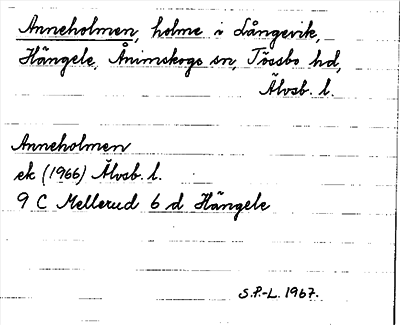 Anneholmen, holme i Långevik,
Hängele, Ånimskogs sn, Tössbo hd,
Älvsb. l.
Anneholmen
ek (1966) Älvsb. l.
9 C Mellerud 6 d Hängele
S.P.-L. 1967.